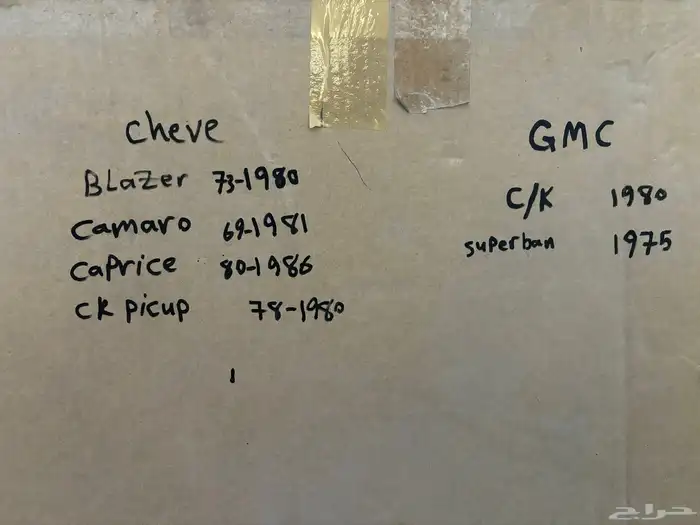 cheve
BLazer 73-1980
camaro 69-1981
caprice 80-1986
CK picup 78-1980
1
GMC
C/K 1980
superban 1975
حراج